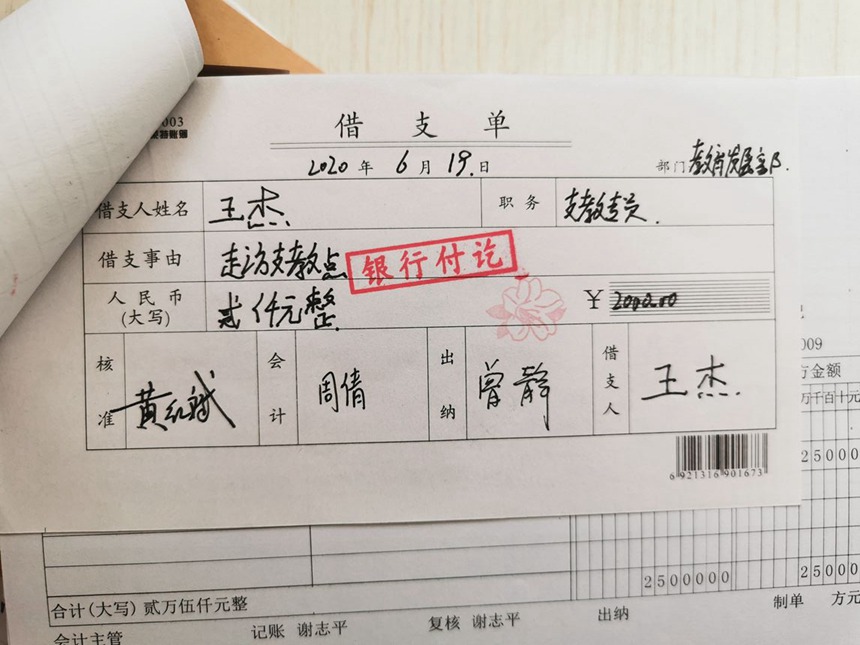 003
借支单
2020年6月19.日 部门 教育发展部.
借支人姓名 王杰. 职务 支教专员.
借支事由 走访支教点 银行付讫
人民币(大写) 贰仟元整. ¥ 2000.00
核准 黄红斌 会计 周倩 出纳 曾静 借支人 王杰.
6 921316 901673
009
万金额
万千百十元
25000
2500000 25000
合计(大写) 贰万伍仟元整
会计主管 记账 谢志平 复核 谢志平 出纳 制单 方元